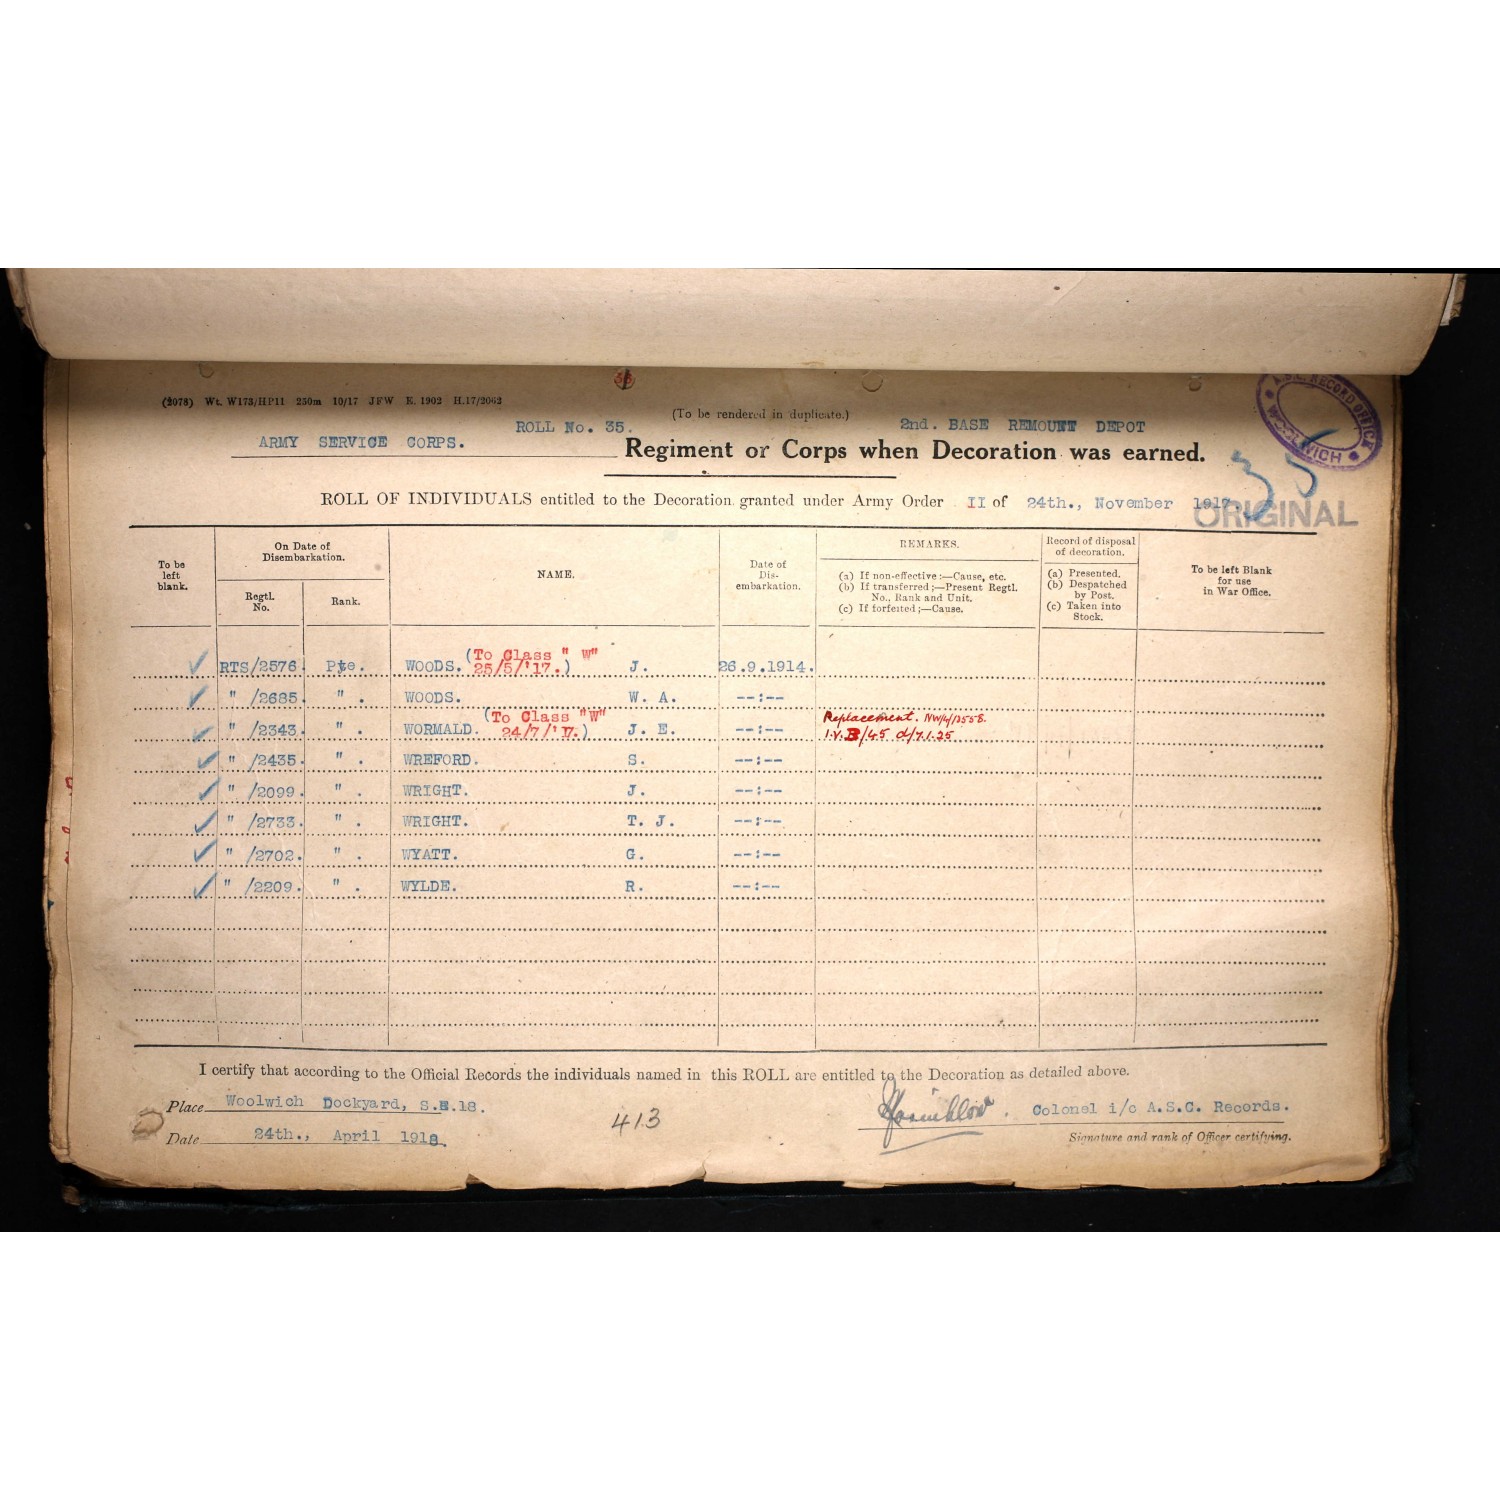 33
(2078) Wt. W173/HP11 250m 10/17 JFW E. 1902 H.17/2062
(To be rendered in duplicate.)
A.S.C. RECORD OFFICE
WOOLWICH
ROLL No. 35. 2nd. BASE REMOUNT DEPOT
ARMY SERVICE CORPS. Regiment or Corps when Decoration was earned.
35
ROLL OF INDIVIDUALS entitled to the Decoration granted under Army Order II of 24th., November 1917.
ORIGINAL
To be left blank.
On Date of Disembarkation.
Regtl. No.
Rank.
NAME.
Date of Dis-embarkation.
REMARKS.
(a) If non-effective :—Cause, etc.
(b) If transferred ;—Present Regtl. No., Rank and Unit.
(c) If forfeited ;—Cause.
Record of disposal of decoration.
(a) Presented.
(b) Despatched by Post.
(c) Taken into Stock.
To be left Blank for use in War Office.
RTS/2576 Pte. WOODS. (To Class "W" 25/5/'17.) J. 26.9.1914.
" /2685 " . WOODS. W. A. --:--
" /2343 " . WORMALD. (To Class "W" 24/7/'17.) J. E. --:-- Replacement. NW/4/12558. I.V.B/45 d/7.1.25
" /2435 " . WREFORD. S. --:--
" /2099. " . WRIGHT. J. --:--
" /2733 " . WRIGHT. T. J. --:--
" /2702. " . WYATT. G. --:--
" /2209. " . WYLDE. R. --:--
I certify that according to the Official Records the individuals named in this ROLL are entitled to the Decoration as detailed above.
Place Woolwich Dockyard, S.E.18.
Colonel i/c A.S.C. Records.
413
Date 24th., April 1918.
Signature and rank of Officer certifying.